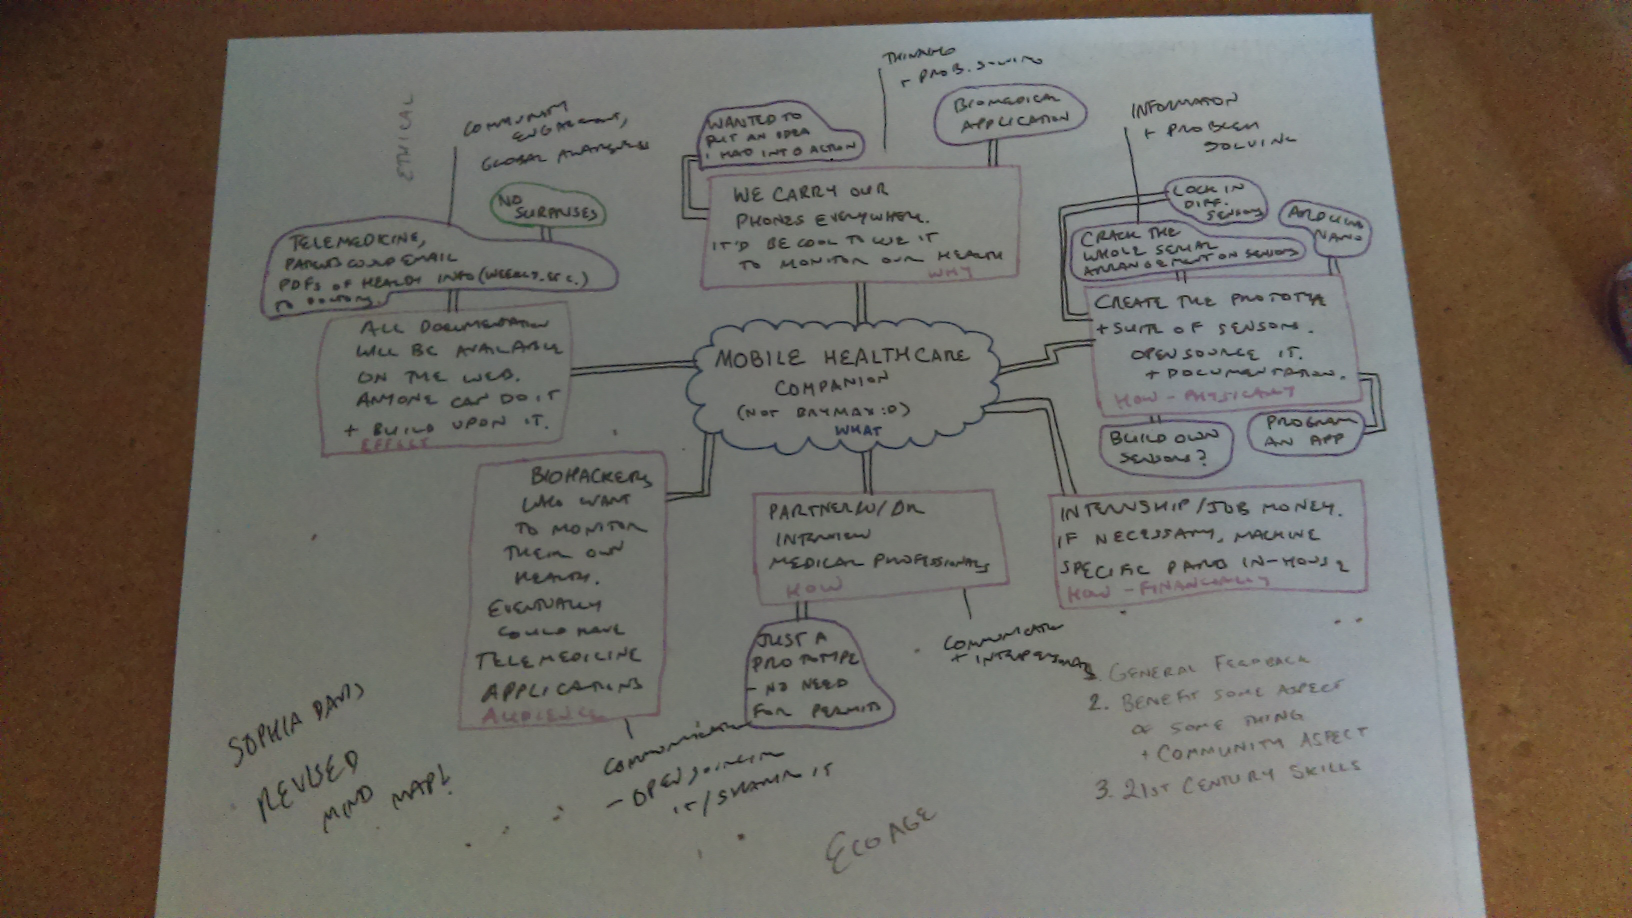 ETHICAL
COMMUNITY
ENGAGEMENT,
GLOBAL AWARENESS
NO
SURPRISES
TELEMEDICINE,
COULD EMAIL
PDFS OF HEALTH INFO (WEEKLY, ETC.)
TO DOCTORS.
ALL DOCUMENTATION
WILL BE AVAILABLE
ON THE WEB.
ANYONE CAN DO IT
+ BUILD UPON IT.
EFFECT
THINKING
+ PROB. SOLVING
WANTED TO
PUT AN IDEA
I HAD INTO ACTION
BIOMEDICAL
APPLICATION
WE CARRY OUR
PHONES EVERYWHERE.
IT'D BE COOL TO USE IT
TO MONITOR OUR HEALTH
WHY
INFORMATION
+ PROBLEM
SOLVING
LOCK IN
DIFF.
SENSORS
ARDUINO
NANO
CRACK THE
WHOLE SERIAL
ARRANGEMENT ON SENSORS
CREATE THE PROTOTYPE
+ SUITE OF SENSORS.
OPEN SOURCE IT.
+ DOCUMENTATION.
HOW - PHYSICALLY
BUILD OWN
SENSORS?
PROGRAM
AN APP
MOBILE HEALTHCARE
COMPANION
(NOT BAYMAX :D)
WHAT
BIOHACKERS
WHO WANT
TO MONITOR
THEIR OWN
HEALTH.
EVENTUALLY
COULD HAVE
TELEMEDICINE
APPLICATIONS
AUDIENCE
PARTNER W/ DR
INTERVIEW
MEDICAL PROFESSIONALS
HOW
INTERNSHIP/JOB MONEY.
IF NECESSARY, MACHINE
SPECIFIC PARTS IN-HOUSE
HOW - FINANCIALLY
JUST A
PROTOTYPE
- NO NEED
FOR PERMITS
COMMUNICATION
+ INTERPERSONAL
COMMUNICATION
- OPEN SOURCING
IT/SHARING IT
1. GENERAL FEEDBACK
2. BENEFIT SOME ASPECT
OF SOME THING
+ COMMUNITY ASPECT
3. 21ST CENTURY SKILLS
SOPHIA DAVIS
REVISED
MIND MAP!
ECO AGE